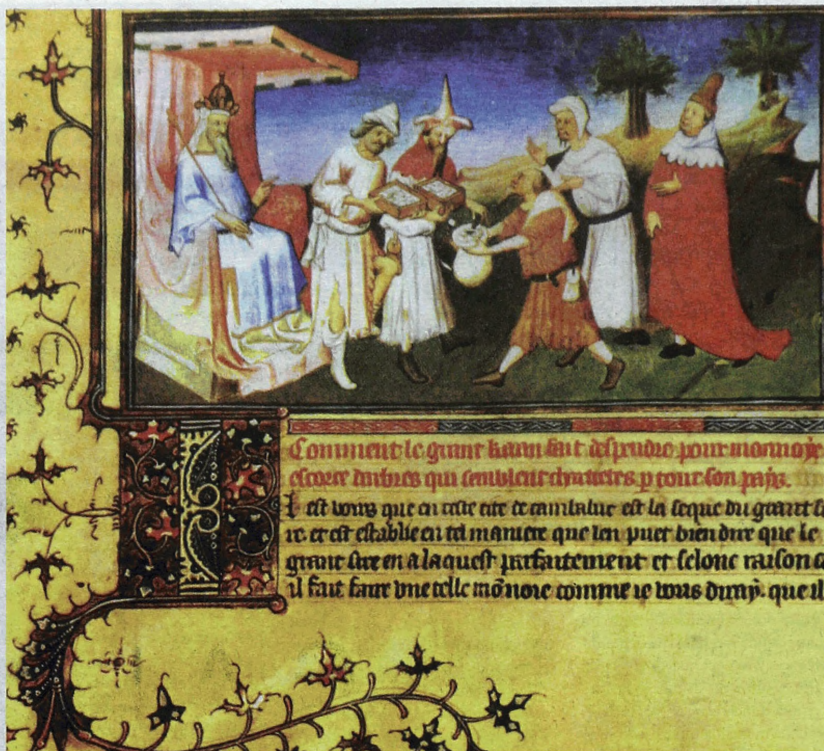 Comment le grant kaan fait despendre pour monnoye
escorce darbres qui semblent chartretes p tout son pays.
Il est voirs que en ceste cite de cambaluc est la seque du grant
et est establie en tel maniere que len puet bien dire que le
grant sire en a laquest parfaitement et selonc raison
il fait faire vne telle mōnoie comme ie vous diray. que il